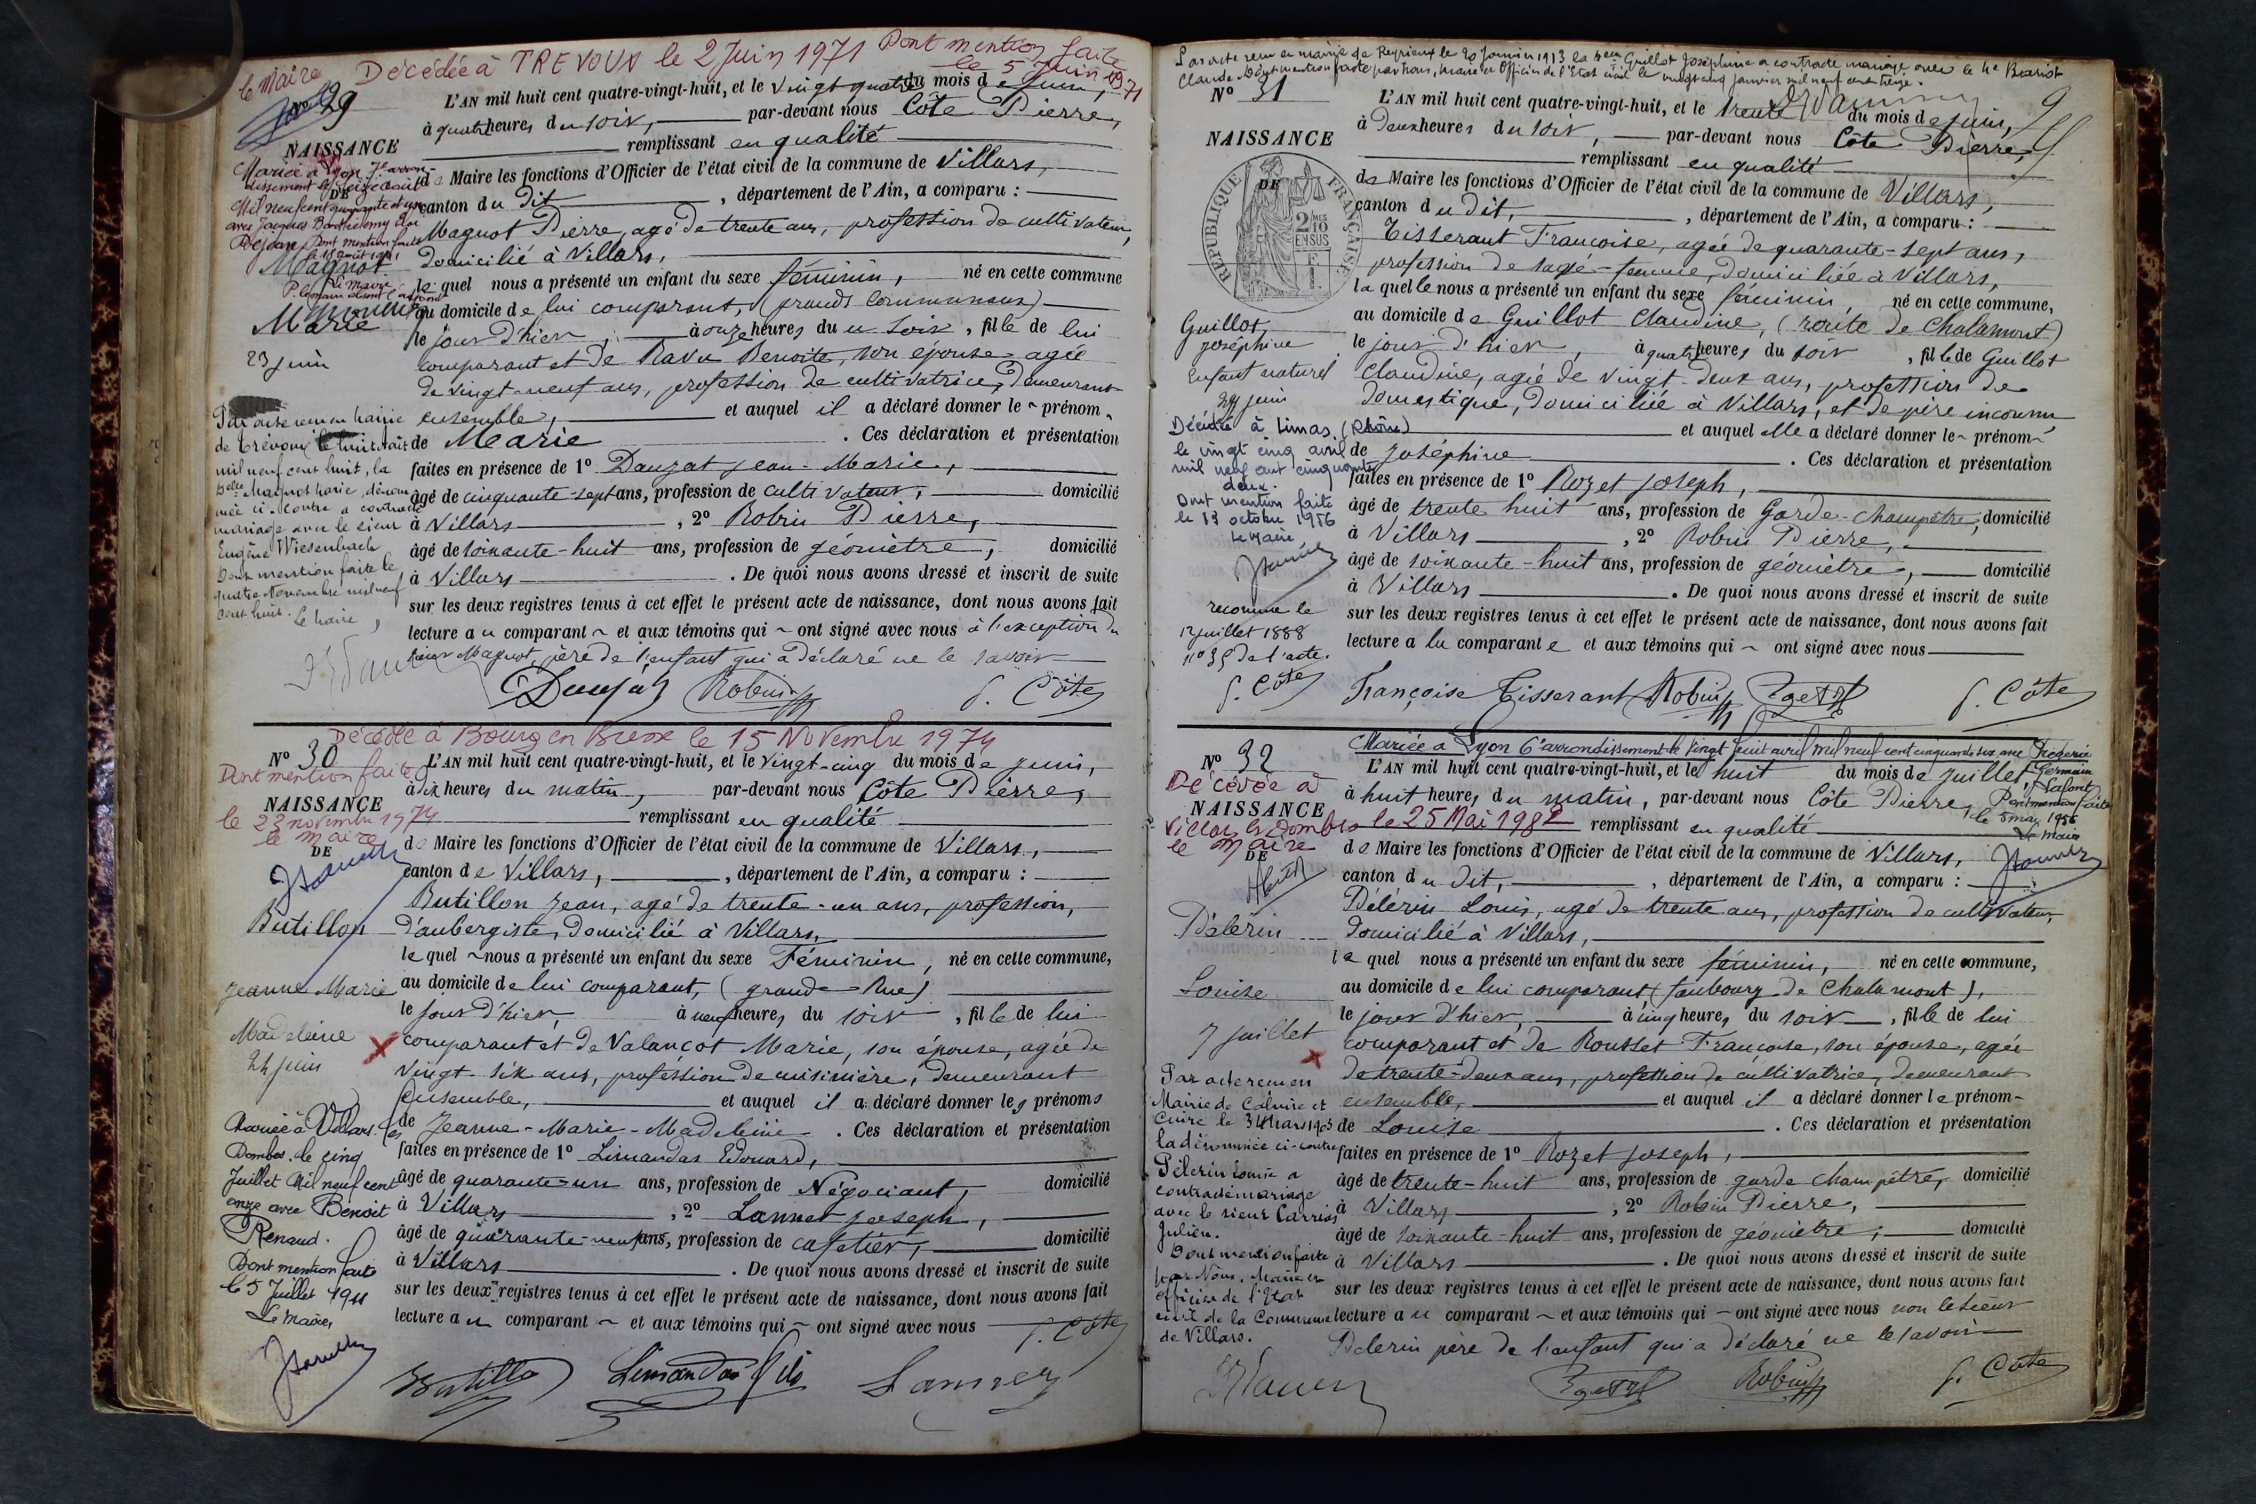 Décédée à TREVOUX le 2 Juin 1971 Dont mention faite
le 5 Juin 1971
le Maire
N° 29
NAISSANCE
DE
Mariée à Lyon 7e arron-
dissement le seize août
Mil neuf cent quarante et un
avec Jacques Barthélemy Eloi
Dejean Dont mention faite
le 18 août 1941
Le Maire
Magnot
Marie
23 juin
L'AN mil huit cent quatre-vingt-huit, et le vingt quatre du mois de juin,
à quatre heures du soir, par-devant nous Côte Pierre,
remplissant en qualité
de Maire les fonctions d'Officier de l'état civil de la commune de Villars,
canton du dit , département de l'Ain, a comparu :
Magnot Pierre, agé de trente ans, profession de cultivateur,
domicilié à Villars,
lequel nous a présenté un enfant du sexe féminin, né en cette commune
au domicile de lui comparant, (grands Communaux)
le jour d'hier, à onze heures du soir, fille de lui
comparant et de Ravu Benoite, son épouse agée
de vingt-neuf ans, profession de cultivatrice, demeurant
ensemble, et auquel il a déclaré donner le prénom
de Marie . Ces déclaration et présentation
faites en présence de 1° Dauzat Jean-Marie,
âgé de cinquante-sept ans, profession de cultivateur, domicilié
à Villars , 2° Robin Pierre,
âgé de soixante-huit ans, profession de géomètre, domicilié
à Villars . De quoi nous avons dressé et inscrit de suite
sur les deux registres tenus à cet effet le présent acte de naissance, dont nous avons fait
lecture au comparant et aux témoins qui ont signé avec nous à l'exception du
sieur Magnot, père de l'enfant qui a déclaré ne le savoir
Par acte reçu en mairie
de Trévoux le huit août
mil neuf cent huit, la
Delle Magnot Marie, dénom
mée ci-contre a contracté
mariage avec le sieur
Eugène Wiesenbach
Dont mention faite le
quatre Novembre mil neuf
cent huit. Le Maire,
Robin P. Côte
Décédée à Bourg en Bresse le 15 Novembre 1974
N° 30
Dont mention faite
NAISSANCE
le 23 novembre 1974
le Maire
DE
Butillon
Jeanne Marie
Madeleine
24 juin
L'AN mil huit cent quatre-vingt-huit, et le vingt-cinq du mois de juin,
à dix heures du matin, par-devant nous Côte Pierre,
remplissant en qualité
de Maire les fonctions d'Officier de l'état civil de la commune de Villars,
canton de Villars, , département de l'Ain, a comparu :
Butillon Jean, agé de trente-un ans, profession,
d'aubergiste, domicilié à Villars,
lequel nous a présenté un enfant du sexe Féminin, né en cette commune,
au domicile de lui comparant, (grande Rue)
le jour d'hier, à neuf heures du soir, fille de lui
comparant et de Valançot Marie, son épouse, agée de
vingt-six ans, profession de cuisinière, demeurant
ensemble, et auquel il a déclaré donner les prénoms
de Jeanne-Marie-Madeleine . Ces déclaration et présentation
faites en présence de 1° Limandas Edouard,
âgé de quarante-un ans, profession de Négociant, domicilié
à Villars , 2° Lanner Joseph,
âgé de quarante-neuf ans, profession de cafetier, domicilié
à Villars . De quoi nous avons dressé et inscrit de suite
sur les deux registres tenus à cet effet le présent acte de naissance, dont nous avons fait
lecture au comparant et aux témoins qui ont signé avec nous
Mariée à Villars les
Dombes le cinq
Juillet Mil neuf cent
onze avec Benoit
Renaud.
Dont mention faite
le 5 Juillet 1911
Le Maire,
P. Côte
Butillon Limandas fils Lanner
Par acte reçu en mairie de Reyrieux le 20 Janvier 1913 la delle Guillot Joséphine a contracté mariage avec le sr
Claude Dont mention faite par nous, Maire Officier de l'état civil le vingt cinq janvier mil neuf cent treize.
N° 31
NAISSANCE
DE
RÉPUBLIQUE FRANÇAISE
2/10 EN SUS
Guillot
Joséphine
Enfant naturel
29 juin
L'AN mil huit cent quatre-vingt-huit, et le trente du mois de juin,
à deux heures du soir, par-devant nous Côte Pierre,
remplissant en qualité
de Maire les fonctions d'Officier de l'état civil de la commune de Villars,
canton du dit, , département de l'Ain, a comparu :
Tisserant Françoise, agée de quarante-sept ans,
profession de sage-femme, domiciliée à Villars,
laquelle nous a présenté un enfant du sexe féminin, né en cette commune,
au domicile de Guillot Claudine, (route de Chalamont)
le jour d'hier, à quatre heures du soir, fille de Guillot
Claudine, agée de vingt-deux ans, profession de
domestique, domiciliée à Villars, et de père inconnu
et auquel elle a déclaré donner le prénom
de Joséphine . Ces déclaration et présentation
faites en présence de 1° Rozet Joseph,
âgé de trente huit ans, profession de Garde-champêtre, domicilié
à Villars , 2° Robin Pierre,
âgé de soixante-huit ans, profession de géomètre, domicilié
à Villars . De quoi nous avons dressé et inscrit de suite
sur les deux registres tenus à cet effet le présent acte de naissance, dont nous avons fait
lecture a la comparante et aux témoins qui ont signé avec nous
Décédée à Limas (Rhône)
le vingt cinq avril
mil neuf cent cinquante
deux.
Dont mention faite
le 13 octobre 1956
Le Maire
reconnue le
12 juillet 1888
n° 35 de l'acte.
P. Côte
Françoise Tisserant Robin P. Côte
Mariée à Lyon 6e arrondissement le vingt huit avril mil neuf cent cinquante six avec Frédéric
Germain
Lafont
Dont mention faite
le 5 mai 1956
Le Maire
N° 32
Décédée à
NAISSANCE
Villars les Dombes le 25 Mai 1982
le Maire
DE
Pélerin
Louise
7 juillet
L'AN mil huit cent quatre-vingt-huit, et le huit du mois de juillet
à huit heures du matin, par-devant nous Côte Pierre,
remplissant en qualité
de Maire les fonctions d'Officier de l'état civil de la commune de Villars,
canton du dit, , département de l'Ain, a comparu :
Pélerin Louis, agé de trente ans, profession de cultivateur,
domicilié à Villars,
lequel nous a présenté un enfant du sexe féminin, né en cette commune,
au domicile de lui comparant (faubourg de Chalamont),
le jour d'hier, à cinq heures du soir, fille de lui
comparant et de Rousset Françoise, son épouse, agée
de trente-deux ans, profession de cultivatrice, demeurant
ensemble, et auquel il a déclaré donner le prénom
de Louise . Ces déclaration et présentation
faites en présence de 1° Rozet Joseph,
âgé de trente-huit ans, profession de garde champêtre, domicilié
à Villars , 2° Robin Pierre,
âgé de soixante-huit ans, profession de géomètre, domicilié
à Villars . De quoi nous avons dressé et inscrit de suite
sur les deux registres tenus à cet effet le présent acte de naissance, dont nous avons fait
lecture au comparant et aux témoins qui ont signé avec nous non le sieur
Pelerin père de l'enfant qui a déclaré ne le savoir
Par acte reçu en
Mairie de Caluire et
Cuire le
la dénommée ci-contre
Pélerin Louise a
contracté mariage
avec le sieur Carrias
Julien.
Dont mention faite
par Nous, Maire
officier de l'Etat
civil de la Commune
de Villars.
Robin P. Côte